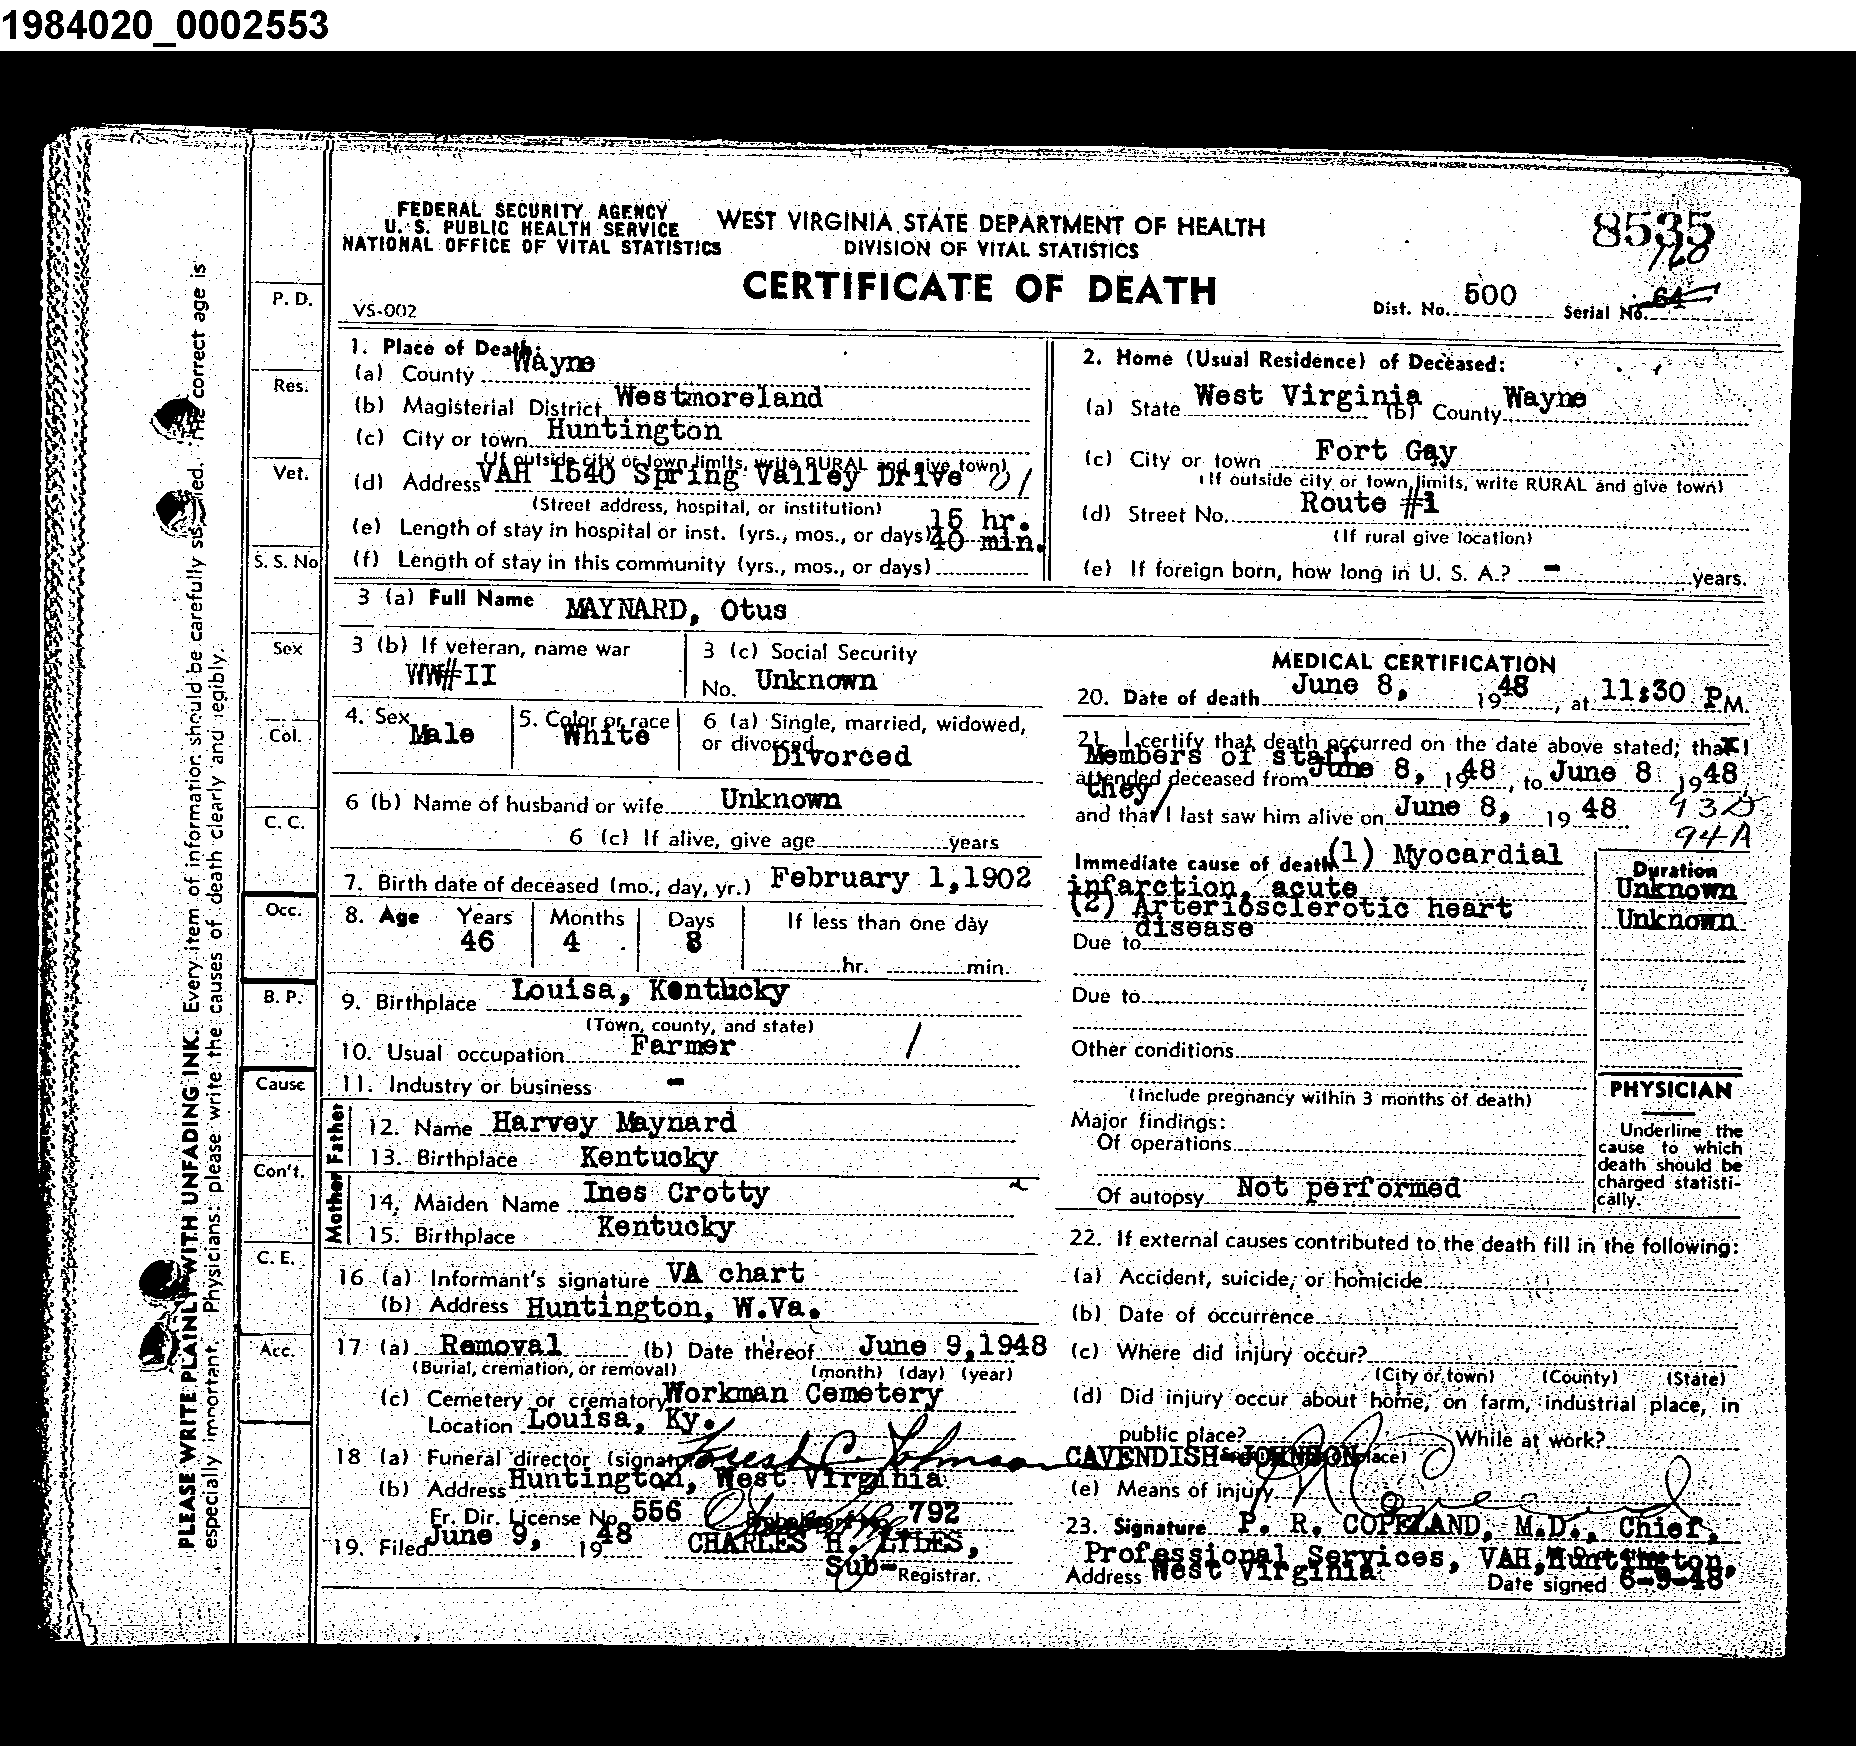 1984020_0002553
FEDERAL SECURITY AGENCY
U. S. PUBLIC HEALTH SERVICE
NATIONAL OFFICE OF VITAL STATISTICS
WEST VIRGINIA STATE DEPARTMENT OF HEALTH
DIVISION OF VITAL STATISTICS
CERTIFICATE OF DEATH
8535
VS-002
Dist. No. 500 Serial No. 64
PLEASE WRITE PLAINLY WITH UNFADING INK. Every item of information should be carefully The correct age is
especially important. Physicians: please write the causes of death clearly and legibly.
P. D.
Res.
Vet.
S. S. No
Sex
Col.
C. C.
Occ.
B. P.
Cause
Con't.
C. E.
Acc.
1. Place of Death:
(a) County Wayne
(b) Magisterial District Westmoreland
(c) City or town Huntington
(If outside city or town limits, write RURAL and give town)
(d) Address VAH 1540 Spring Valley Drive 01
(Street address, hospital, or institution)
(e) Length of stay in hospital or inst. (yrs., mos., or days) 15 hr. 40 min.
(f) Length of stay in this community (yrs., mos., or days)
2. Home (Usual Residence) of Deceased:
(a) State West Virginia (b) County Wayne
(c) City or town Fort Gay
(If outside city or town limits, write RURAL and give town)
(d) Street No. Route #1
(If rural give location)
(e) If foreign born, how long in U. S. A.? - years.
3 (a) Full Name MAYNARD, Otus
3 (b) If veteran, name war
WW#II
3 (c) Social Security
No. Unknown
4. Sex Male
5. Color or race White
6 (a) Single, married, widowed,
or divorced Divorced
6 (b) Name of husband or wife Unknown
6 (c) If alive, give age years
7. Birth date of deceased (mo., day, yr.) February 1,1902
8. Age Years Months Days If less than one day
46 4 8
hr. min.
9. Birthplace Louisa, Kentucky
(Town, county, and state)
10. Usual occupation Farmer
11. Industry or business -
Father
12. Name Harvey Maynard
13. Birthplace Kentucky
Mother
14. Maiden Name Ines Crotty
15. Birthplace Kentucky
16 (a) Informant's signature VA chart
(b) Address Huntington, W.Va.
17 (a) Removal (b) Date thereof June 9,1948
(Burial, cremation, or removal) (month) (day) (year)
(c) Cemetery or crematory Workman Cemetery
Location Louisa, Ky.
18 (a) Funeral director (signature) Forest C. Johnson CAVENDISH-JOHNSON
(b) Address Huntington, West Virginia
Fr. Dir. License No. 556 792
19. Filed June 9, 1948 CHARLES H. LYLES,
Sub- Registrar.
MEDICAL CERTIFICATION
20. Date of death June 8, 1948, at 11:30 P M.
21. I certify that death occurred on the date above stated; that I
Members of staff
attended deceased from June 8, 1948, to June 8 1948
they
and that I last saw him alive on June 8, 1948
93D
94A
Immediate cause of death (1) Myocardial
infarction, acute
(2) Arteriosclerotic heart
disease
Duration
Unknown
Unknown
Due to
Due to
Other conditions
(Include pregnancy within 3 months of death)
Major findings:
Of operations
Of autopsy Not performed
PHYSICIAN
Underline the
cause to which
death should be
charged statisti-
cally.
22. If external causes contributed to the death fill in the following:
(a) Accident, suicide, or homicide
(b) Date of occurrence
(c) Where did injury occur?
(City or town) (County) (State)
(d) Did injury occur about home, on farm, industrial place, in
public place? While at work?
(e) Means of injury
23. Signature P. R. COPELAND, M.D., Chief,
Professional Services, VAH, Huntington,
Address West Virginia Date signed 6-9-48